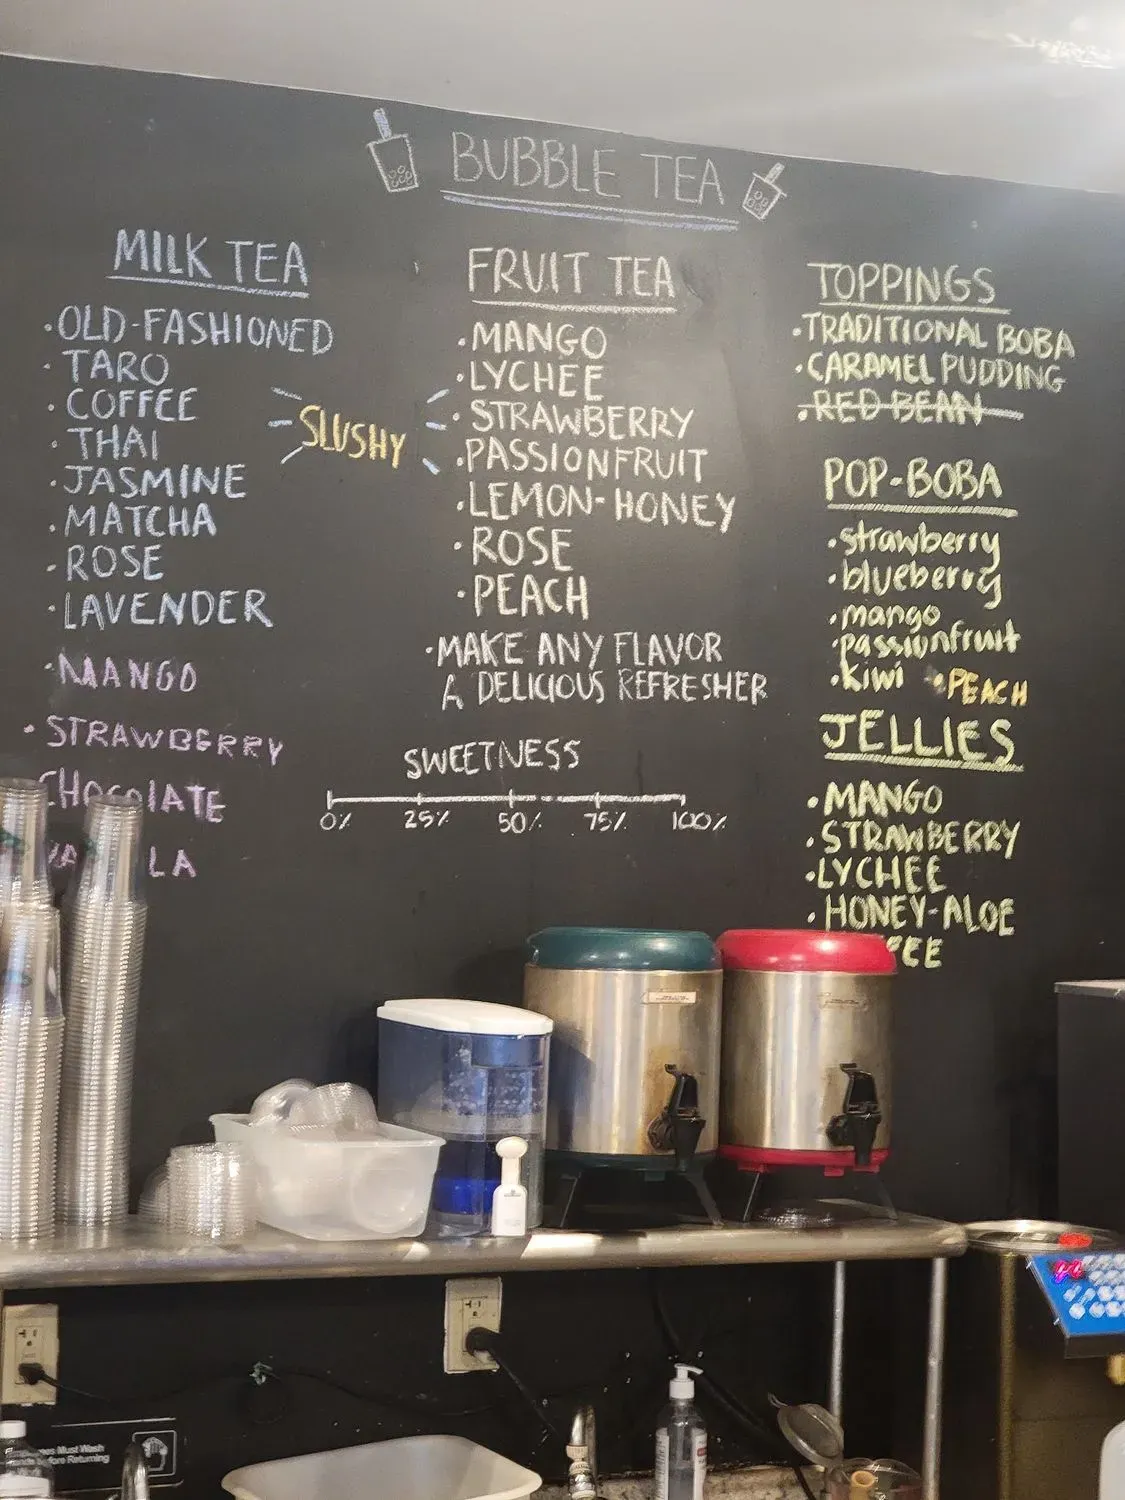 BUBBLE TEA
MILK TEA
·OLD-FASHIONED
·TARO
·COFFEE
·THAI
·JASMINE
·MATCHA
·ROSE
·LAVENDER
·MANGO
·STRAWBERRY
CHOCOLATE
LA
SLUSHY
FRUIT TEA
·MANGO
·LYCHEE
·STRAWBERRY
·PASSIONFRUIT
·LEMON-HONEY
·ROSE
·PEACH
·MAKE ANY FLAVOR
A DELICIOUS REFRESHER
SWEETNESS
0% 25% 50% 75% 100%
TOPPINGS
·TRADITIONAL BOBA
·CARAMEL PUDDING
·RED BEAN
POP-BOBA
·strawberry
·blueberry
·mango
·passionfruit
·kiwi ·PEACH
JELLIES
·MANGO
·STRAWBERRY
·LYCHEE
·HONEY-ALOE
FEE
Employees Must Wash
Hands Before Returning